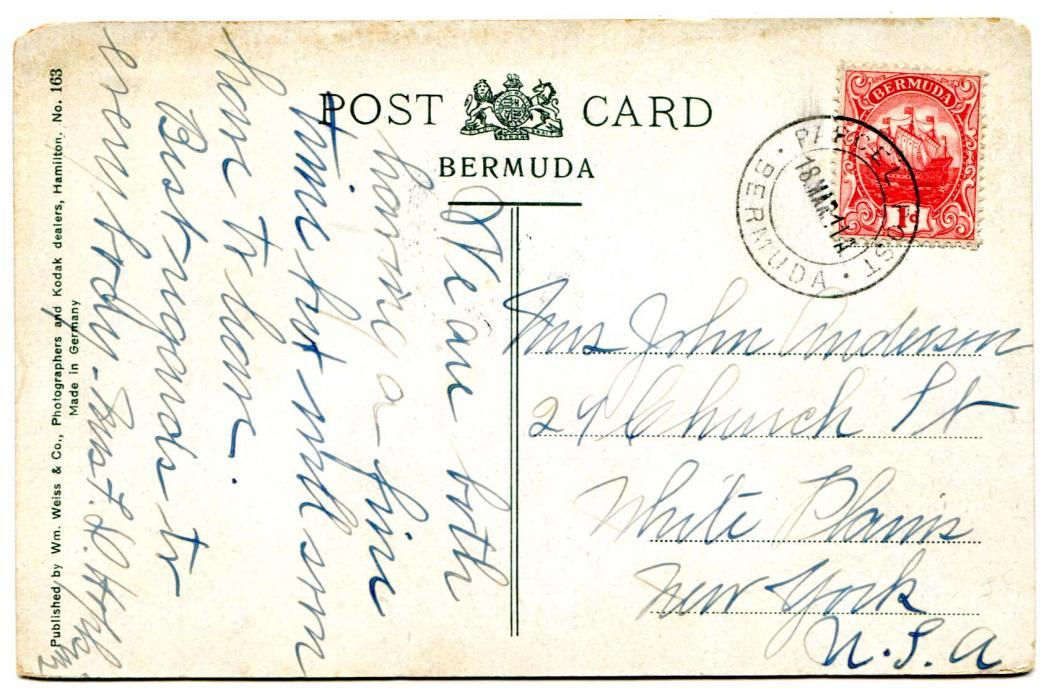 POST CARD
BERMUDA
BERMUDA
1d
PARCEL POST
18 MAR
BERMUDA
We are both
having a fine
time but will soon
have to leave.
Best regards to
everybody - Mrs. F. D.
Mrs John Anderson
29 Church St
White Plains
New York
U.S.A
Published by Wm. Weiss & Co., Photographers and Kodak dealers, Hamilton. No. 163
Made in Germany